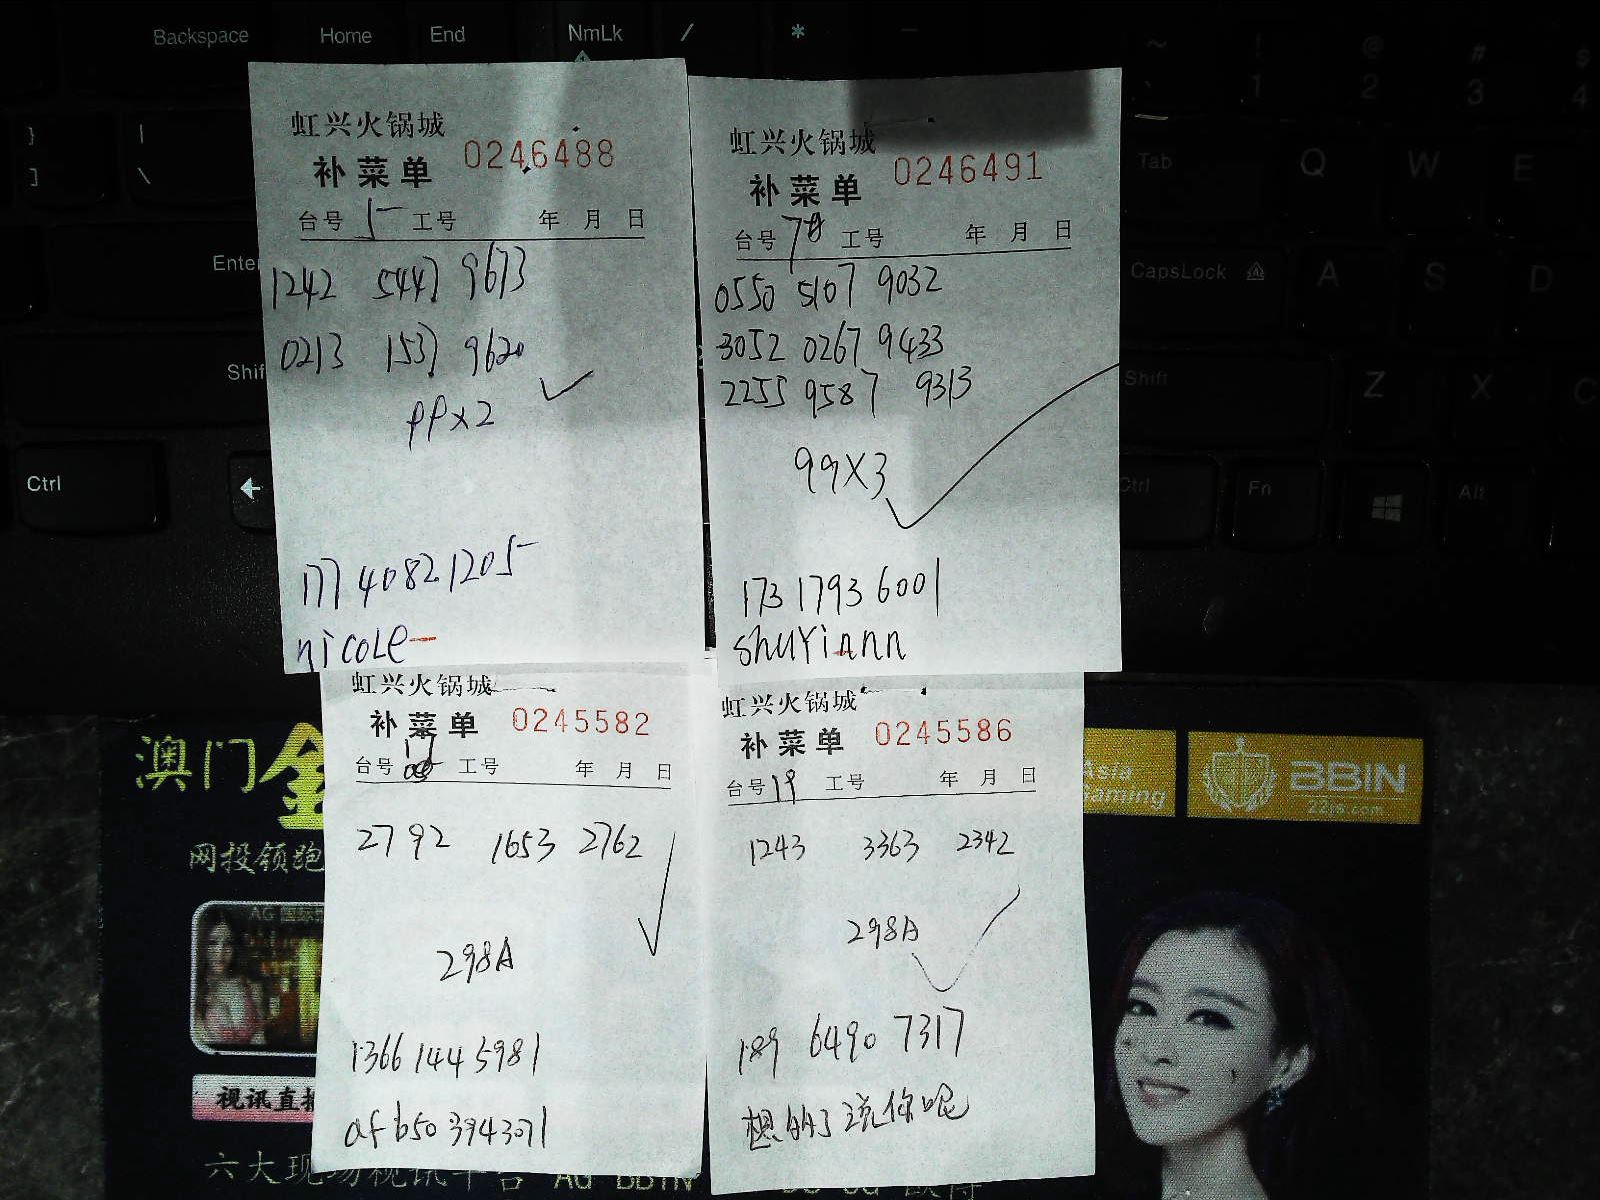 Backspace Home End NmLk / *
虹兴火锅城
补菜单 0246488
台号 15 工号 年 月 日
1242 5447 9673
0213 1537 9620
PP×2
177 4082 1205
nicole
虹兴火锅城
补菜单 0246491
台号 工号 年 月 日
0550 5107 9032
3052 0267 9433
2255 9587 9313
99X3
173 1793 6001
shuYiannn
虹兴火锅城
补菜单 0245582
台号 工号 年 月 日
2792 1653 2762
298A
1366 144 5981
afb503943071
虹兴火锅城
补菜单 0245586
台号 19 工号 年 月 日
1243 3363 2342
298A
189 6490 7317
想的了说你呢
} |
] \
Enter
Shif
Ctrl
~ ! @ # $
` 1 2 3 4
Tab Q W E
CapsLock A S D
Shift Z X C
Ctrl Fn Alt
澳门金
网投领跑
AG 国际
视讯直播
六大现场视讯平台 AG BBIN
Asia
Gaming
BBIN